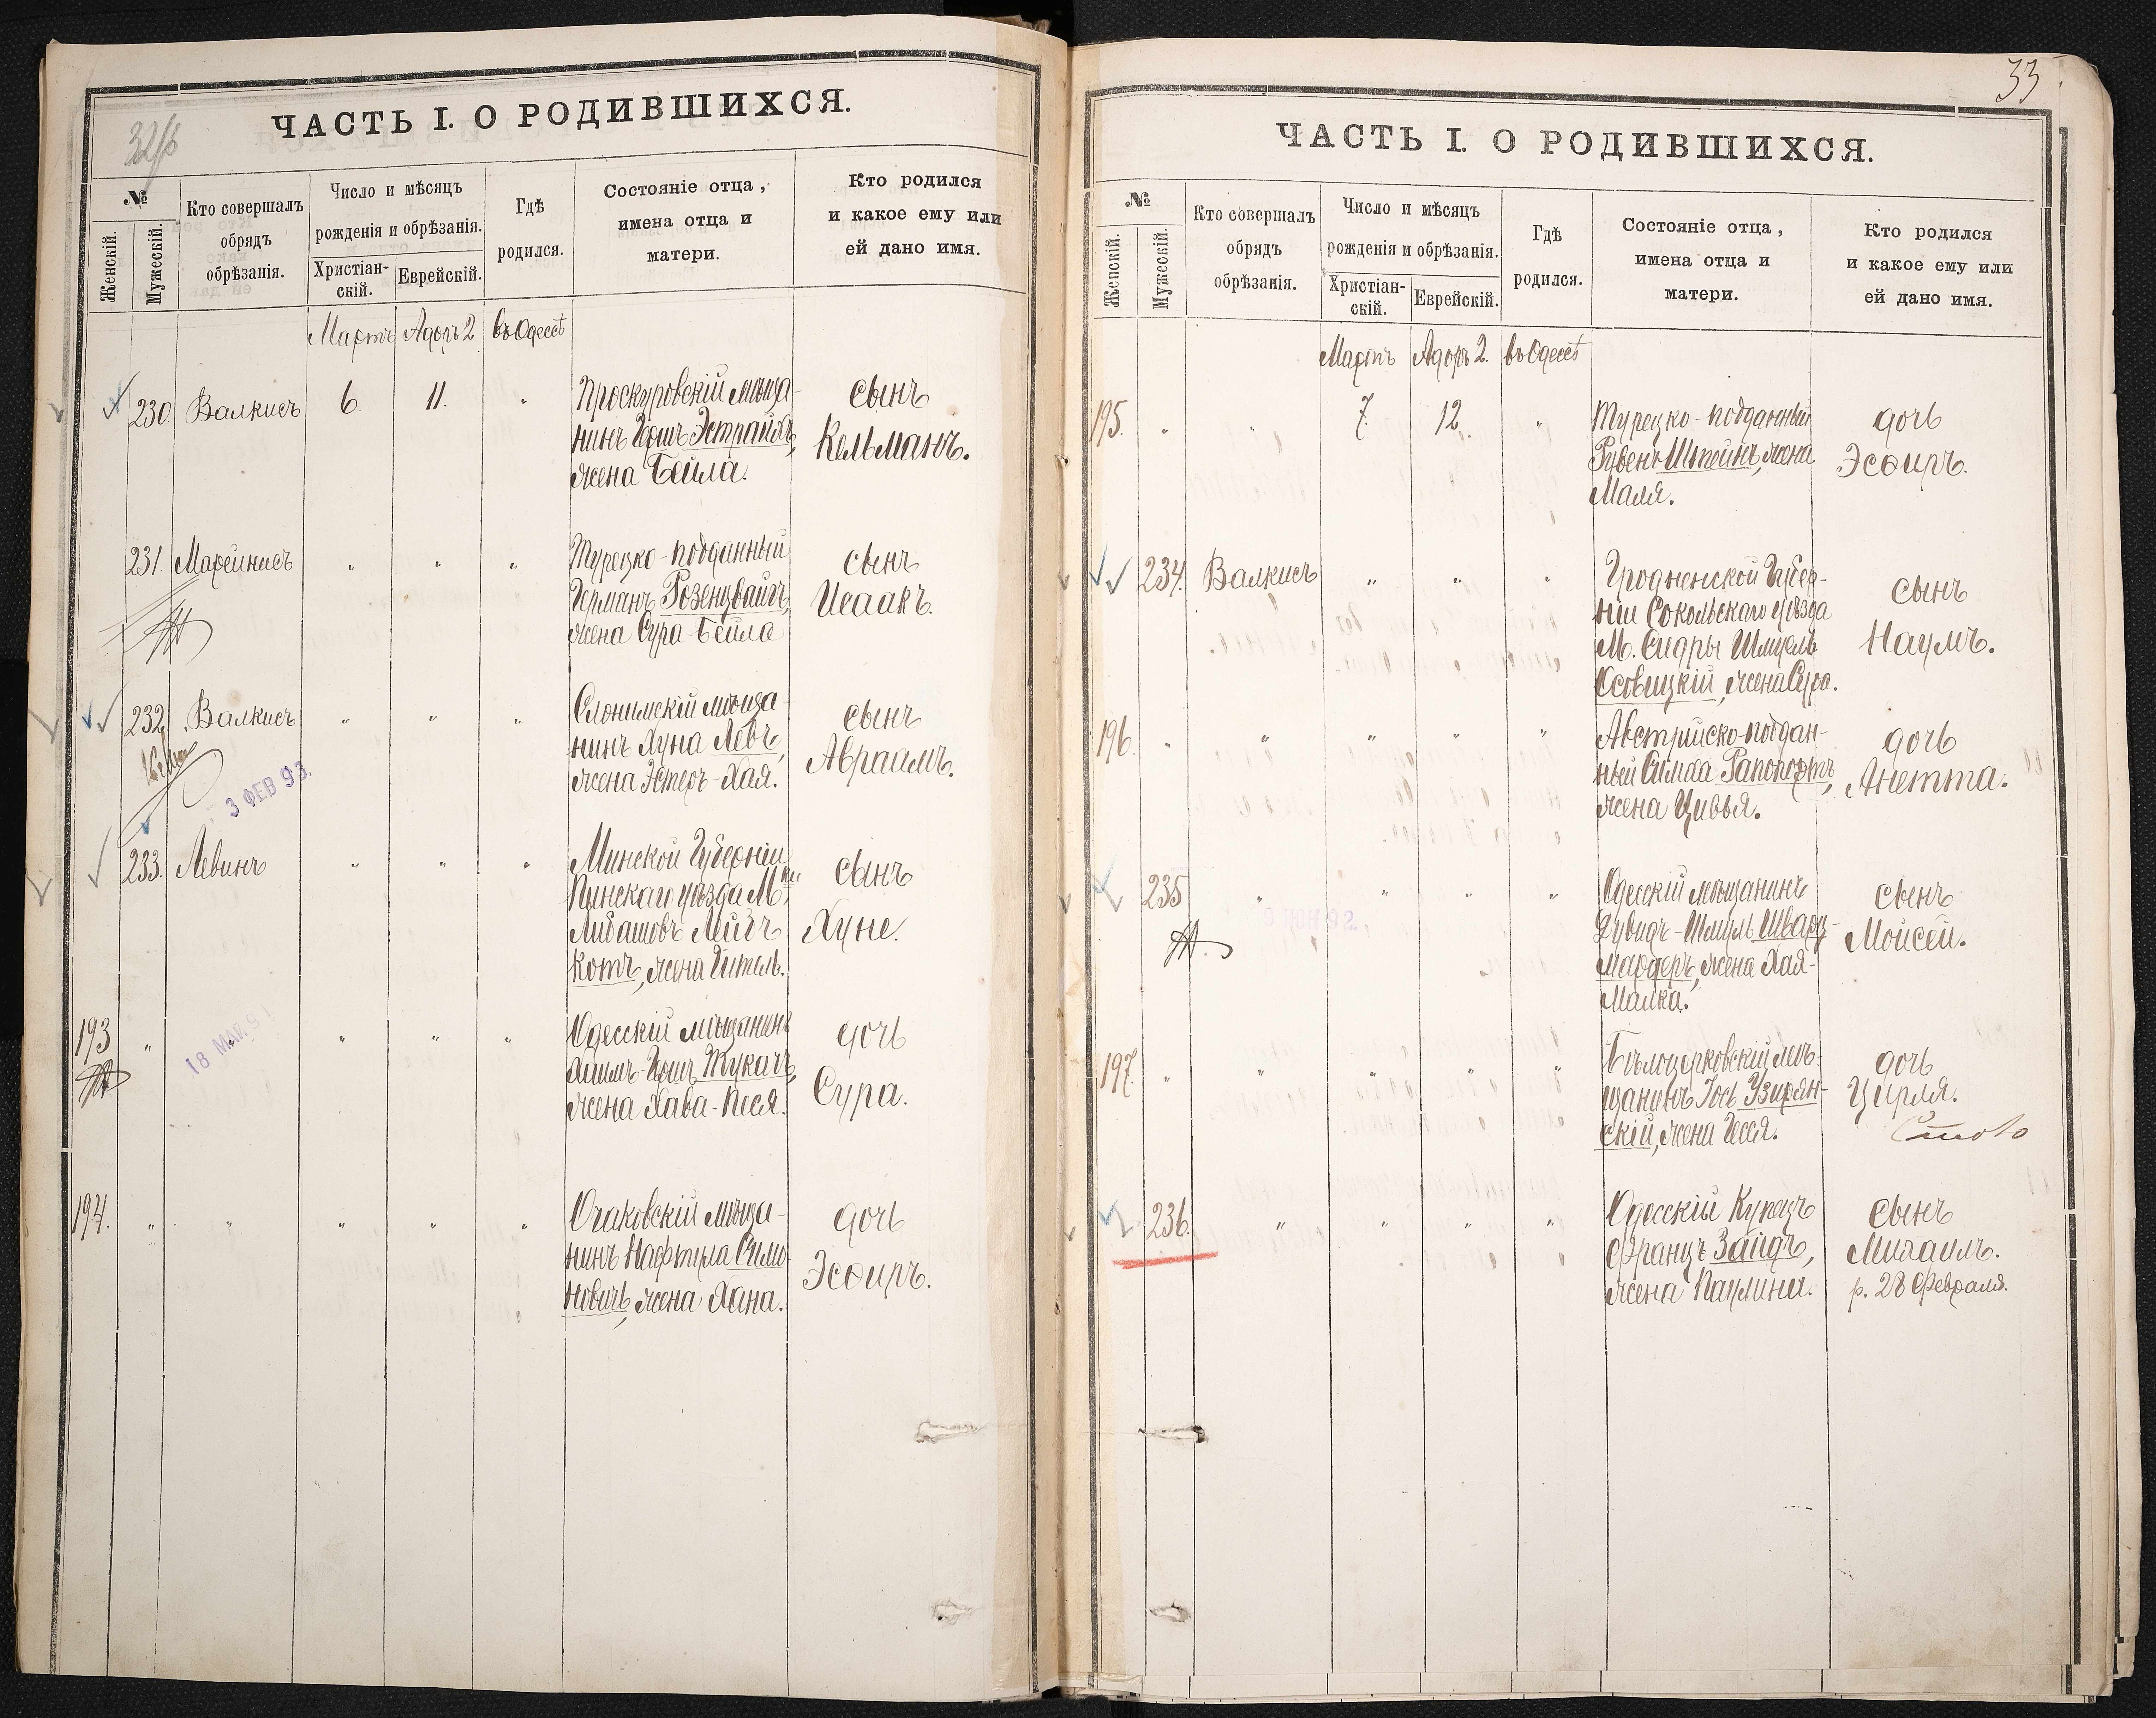 32/б
ЧАСТЬ I. О РОДИВШИХСЯ.
№
Женскій.
Мужескій.
Кто совершалъ
обрядъ
обрѣзанія.
Число и мѣсяцъ
рожденія и обрѣзанія.
Христіан-
скій.
Еврейскій.
Гдѣ
родился.
Состояніе отца,
имена отца и
матери.
Кто родился
и какое ему или
ей дано имя.
Мартъ Адаръ 2 въ Одессѣ
230. Валкисъ 6. 11. "
Проскуровскій мѣща-
нинъ Гершъ Эстрайхъ,
жена Бейла.
сынъ
Кельманъ.
231. Марейнисъ " " "
Турецко-подданный
Германъ Розенцвайгъ,
жена Сура-Бейла
сынъ
Исаакъ.
232. Валкисъ " " "
Слонимскій мѣща-
нинъ Хуна Левъ,
жена Эстеръ-Хая.
сынъ
Авраамъ.
3 ФЕВ 93.
233. Левинъ " " "
Минской Губерніи
Пинскаго уѣзда М-ки
Любашовъ Лейбъ
Котъ, жена Гитель.
сынъ
Хуне.
193 " " " "
Одесскій мѣщанинъ
Хаимъ-Гершъ Тукачъ,
жена Хава-Песя.
дочь
Сура.
18 МАЙ. 91
194. " " " " "
Очаковскій мѣща-
нинъ Нафтула Симо-
новичъ, жена Хана.
дочь
Эсѳирь.
33
ЧАСТЬ I. О РОДИВШИХСЯ.
№
Женскій.
Мужескій.
Кто совершалъ
обрядъ
обрѣзанія.
Число и мѣсяцъ
рожденія и обрѣзанія.
Христіан-
скій.
Еврейскій.
Гдѣ
родился.
Состояніе отца,
имена отца и
матери.
Кто родился
и какое ему или
ей дано имя.
Мартъ Адаръ 2. въ Одессѣ
195. " " 7. 12. "
Турецко-подданный
Рувенъ Штейнъ, жена
Маля.
дочь
Эсѳирь.
234. Валкисъ " " "
Гродненской Губер-
ніи Сокольскаго уѣзда
М. Сидры Шмуель
Осовицкій, жена Сура.
сынъ
Наумъ.
196. " " " " "
Австрійско-поддан-
ный Симха Рапопортъ,
жена Цивья.
дочь
Анетта.
235 " " " "
9 ІЮН 92.
Одесскій мѣщанинъ
Дувидъ-Шмуль Шварц-
мардеръ, жена Хая-
Малка.
сынъ
Мойсей.
197. " " " " "
Бѣлоцерковскій мѣ-
щанинъ Іось Узирян-
скій, жена Гесся.
дочь
Цирля.
236. " " " "
Одесскій Купецъ
Францъ Зайдъ,
жена Паулина.
сынъ
Михаилъ.
р. 28 Февраля.